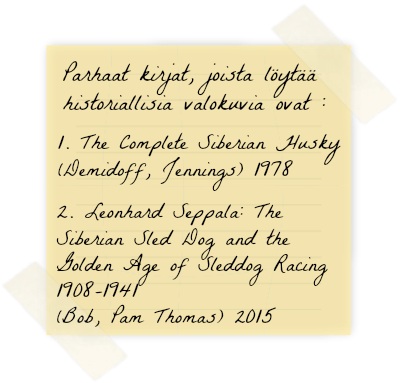 Parhaat kirjat, joista löytää
historiallisia valokuvia ovat :
1. The Complete Siberian Husky
(Demidoff, Jennings) 1978
2. Leonhard Seppala: The
Siberian Sled Dog and the
Golden Age of Sleddog Racing
1908-1941
(Bob, Pam Thomas) 2015